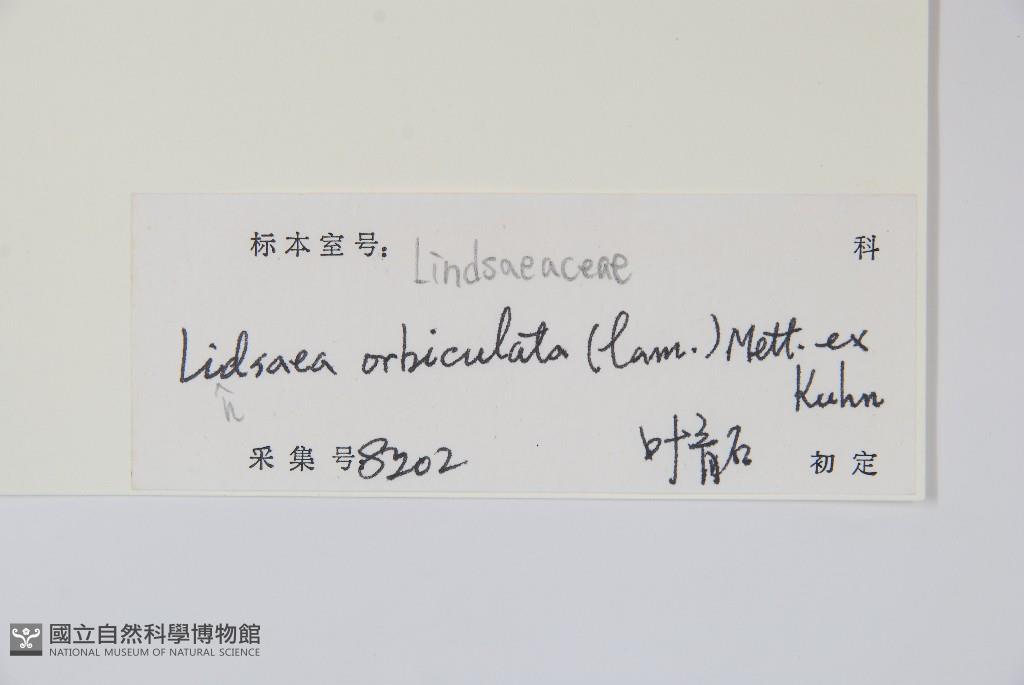 标本室号: Lindsaeaceae 科
Lidsaea orbiculata (Lam.) Mett. ex
n
Kuhn
采集号 8202 叶育石 初定
國立自然科學博物館
NATIONAL MUSEUM OF NATURAL SCIENCE